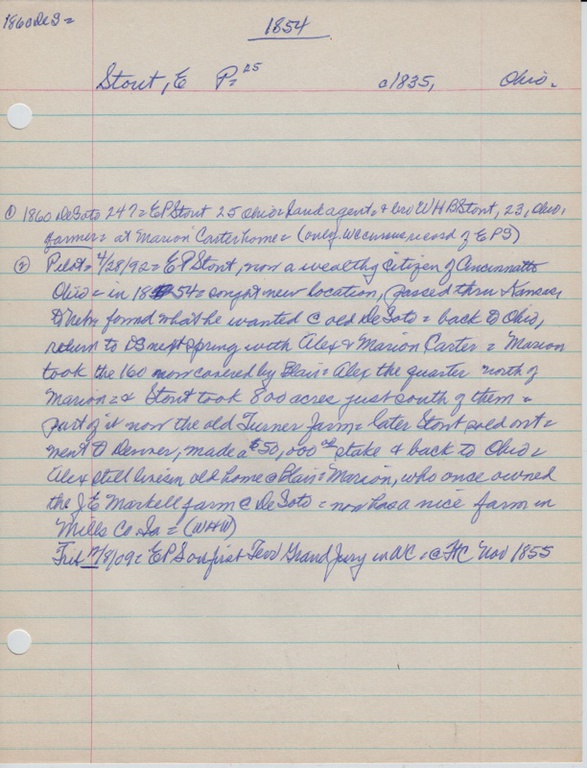 1860 DeS=
1854
Stout, E P= 25 a1835, Ohio.
① 1860 DeSoto 247= E P Stout 25 Ohio= Land agent, & bro W H B Stout, 23, Ohio,
farmer= at Marion Carter home= (only WC census record of EPS)
② Pilot= 4/28/92= E P Stout, now a wealthy citizen of Cincinnatti
Ohio= in 1854= sought new location, passed thru Kansas,
to Nebr found what he wanted @ old DeSoto= back to Ohio,
return to DS next spring with Alex & Marion Carter= Marion
took the 160 now covered by Blair= Alex the quarter north of
Marion= & Stout took 800 acres just south of them=
part of it now the old Turner farm= later Stout sold out=
went to Denver, made a $50,000 stake & back to Ohio=
Alex still lives in old home @ Blair= Marion, who once owned
the J E Markell farm @ DeSoto= now has a nice farm in
Mills Co Ia= (WHW)
Trib 12/8/09= E P S on first Terr Grand Jury in WC= @ FtC Nov 1855